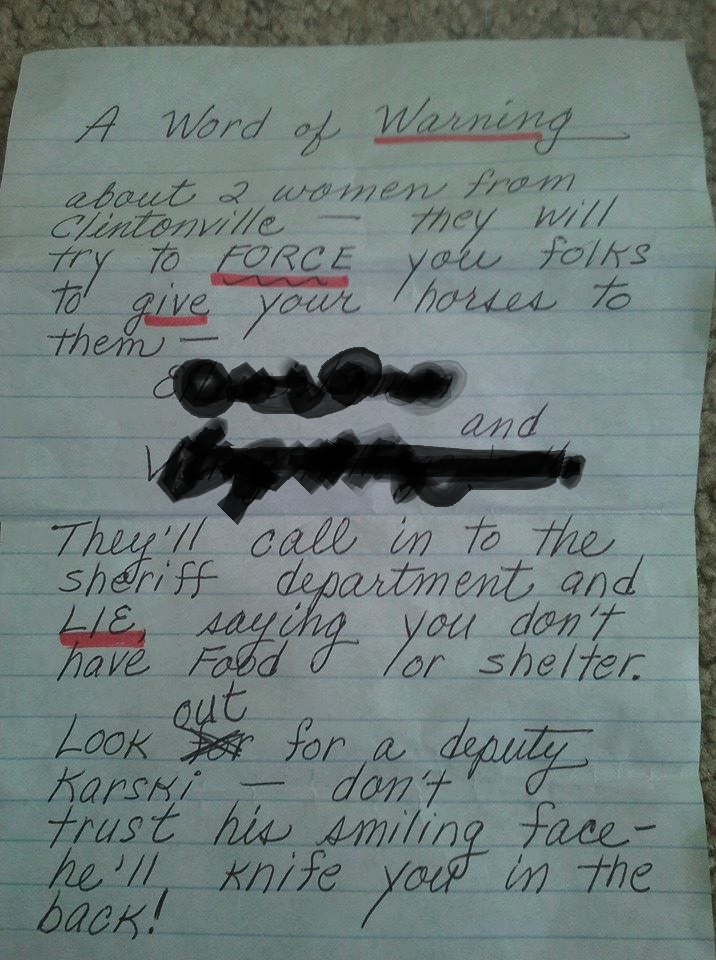 A Word of Warning
about 2 women from
Clintonville — they will
try to FORCE you folks
to give your horses to
them —
and
They'll call in to the
sheriff department and
LIE, saying you don't
have Food or shelter.
out
Look for for a deputy
Karski — don't
trust his smiling face-
he'll knife you in the
back!